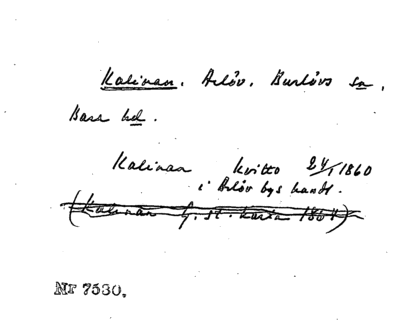 Kalinan. Arlöv. Burlövs sn,
Bara hd.
Kalinan kvitto 24/1 1860
i Arlöv bys handl.
(Kalinan g. st. karta 1864)
Nr 7530.